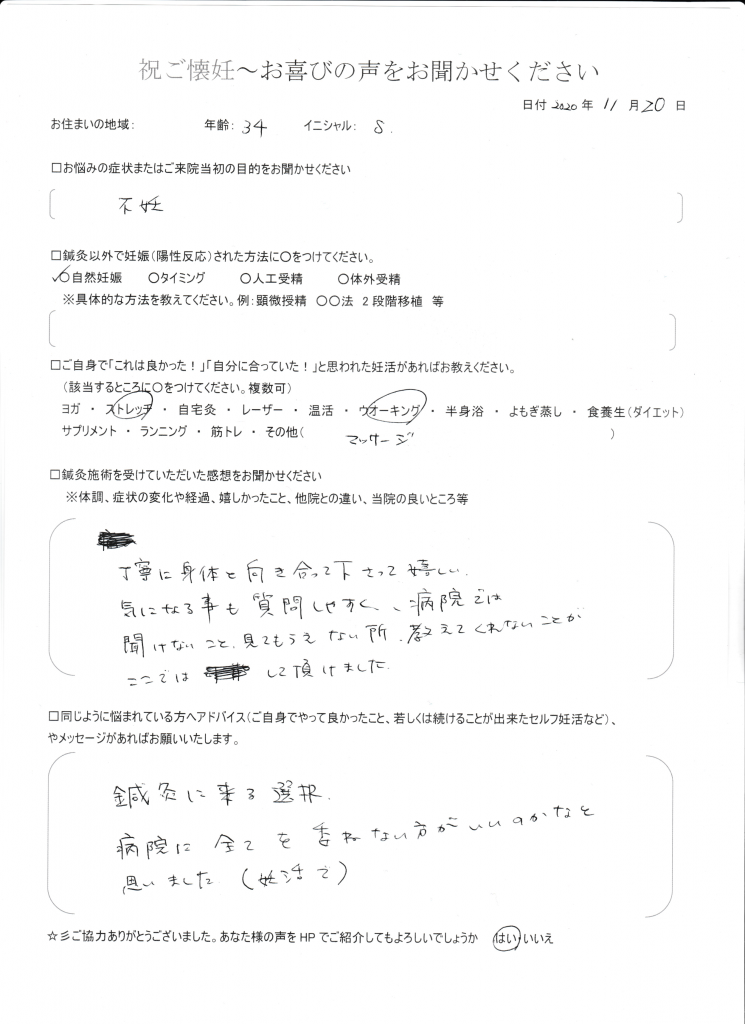 祝ご懐妊～お喜びの声をお聞かせください
日付 2020 年 11 月 20 日
お住まいの地域： 年齢： 34 イニシャル： S.
□お悩みの症状またはご来院当初の目的をお聞かせください
不妊
□鍼灸以外で妊娠（陽性反応）された方法に〇をつけてください。
✓〇自然妊娠 〇タイミング 〇人工受精 〇体外受精
※具体的な方法を教えてください。例：顕微授精 〇〇法 2段階移植 等
□ご自身で「これは良かった！」「自分に合っていた！」と思われた妊活があればお教えください。
（該当するところに〇をつけてください。複数可）
ヨガ ・ ストレッチ ・ 自宅灸 ・ レーザー ・ 温活 ・ ウオーキング ・ 半身浴 ・ よもぎ蒸し ・ 食養生（ダイエット）
サプリメント ・ ランニング ・ 筋トレ ・ その他（ マッサージ ）
□鍼灸施術を受けていただいた感想をお聞かせください
※体調、症状の変化や経過、嬉しかったこと、他院との違い、当院の良いところ等
丁寧に身体と向き合って下さって嬉しい.
気になる事も質問しやすく、病院では
聞けないこと、見てもらえない所、教えてくれないことが
ここでは して頂けました.
□同じように悩まれている方へアドバイス（ご自身でやって良かったこと、若しくは続けることが出来たセルフ妊活など）、
やメッセージがあればお願いいたします。
鍼灸に来る選択.
病院に全てを委ねない方がいいのかなと
思いました.（妊活で）
☆彡ご協力ありがとうございました。あなた様の声をHPでご紹介してもよろしいでしょうか はい・いいえ